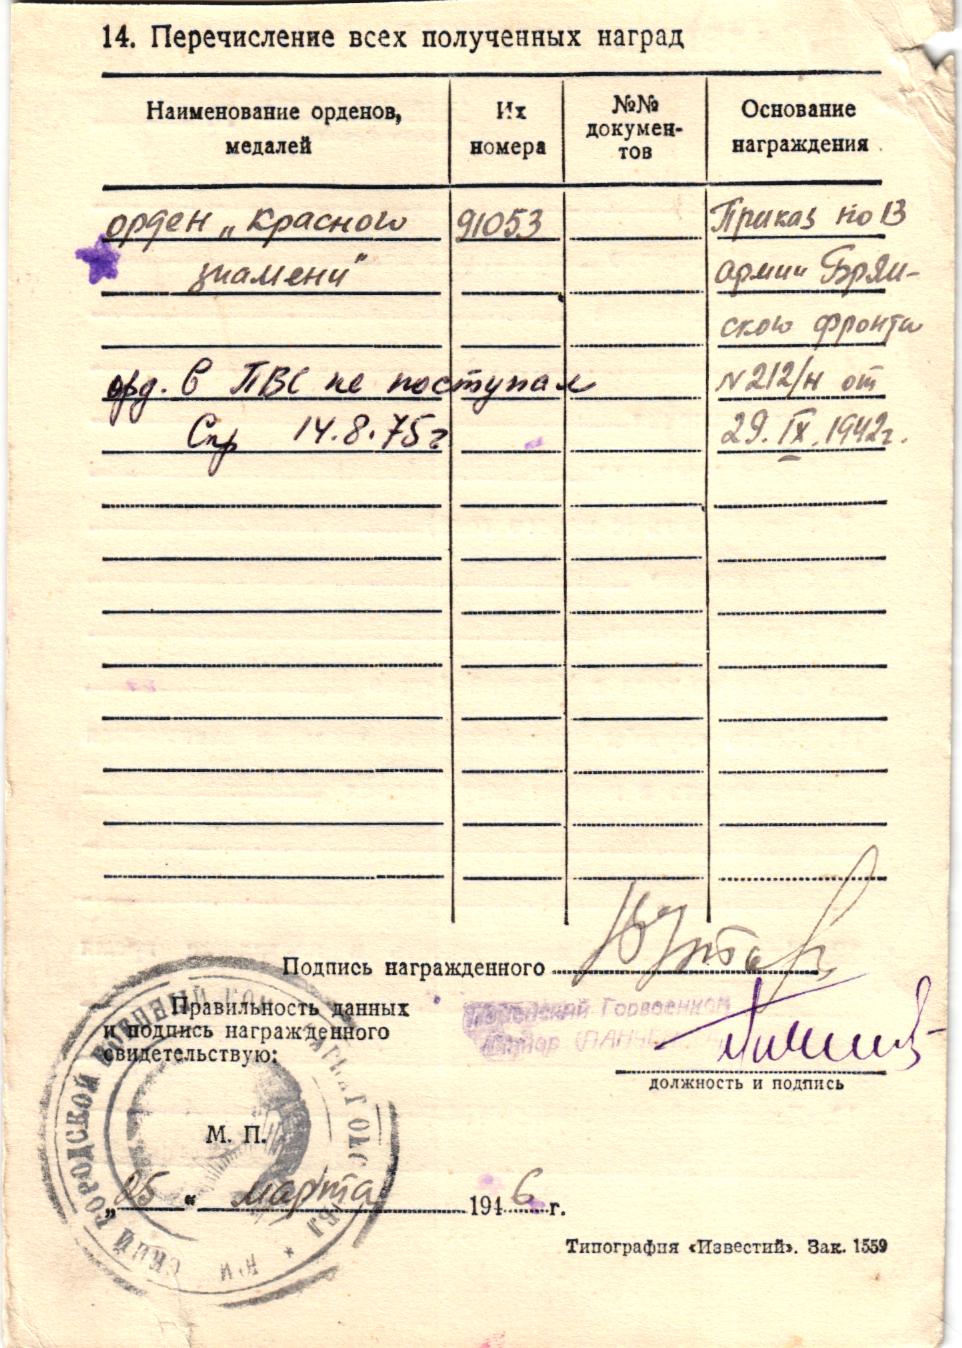 14. Перечисление всех полученных наград
Наименование орденов,
медалей
Их
номера
№№
докумен-
тов
Основание
награждения
орден „Красного
знамени"
91053
Приказ по 13
армии Брян-
ского фронта
№212/н от
29.IX.1942г.
орд. в ПВС не поступал
Спр 14.8.75г
Подпись награжденного
Правильность данных
и подпись награжденного
свидетельствую:
Горвоенком
должность и подпись
М. П.
ГОРОДСКОЙ ВОЕННЫЙ
„25" марта 1946 г.
Типография «Известий». Зак. 1559